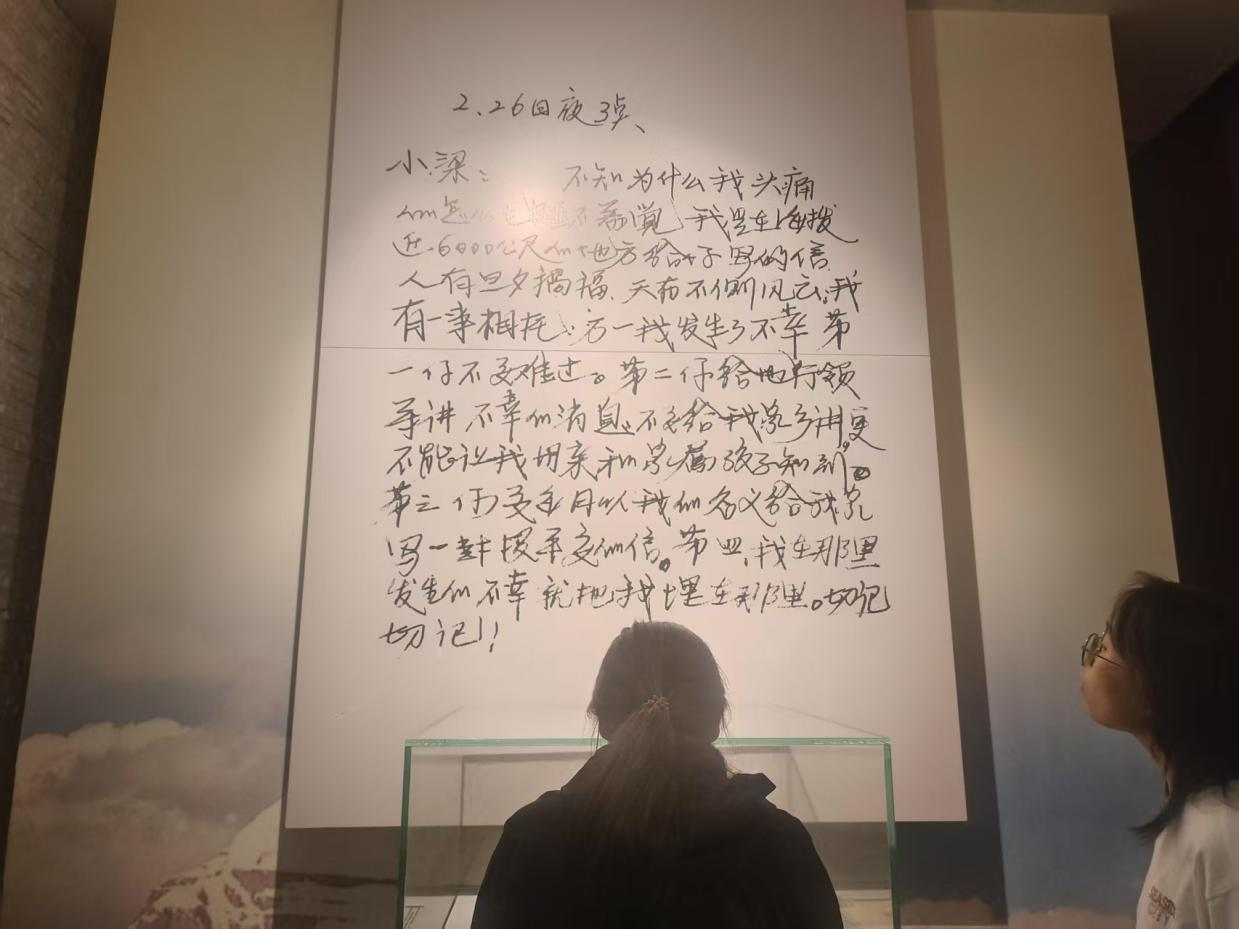 2、26日夜3点、
小梁： 不知为什么我头痛
的怎么也睡不着觉 我是在海拔
近6000公尺的地方给你写的信
人有旦夕祸福、天有不测风云，我
有一事相托：万一我发生了不幸 第
一 你不要难过。第二 你给地行领
导讲 不幸的消息，不要给我家乡讲，更
不能让我母亲和家属孩子知到。
第三 你要每月以我的名义给我家
写一封报平安的信。第四、我在那里
发生的不幸 就把我埋在那里。切记
切记！！